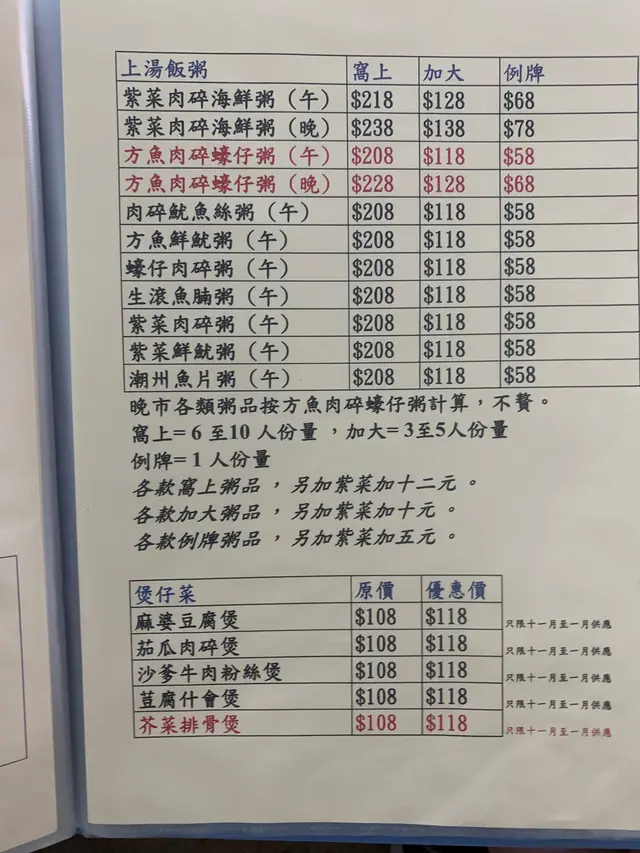 上湯飯粥 窩上 加大 例牌
紫菜肉碎海鮮粥（午） $218 $128 $68
紫菜肉碎海鮮粥（晚） $238 $138 $78
方魚肉碎蠔仔粥（午） $208 $118 $58
方魚肉碎蠔仔粥（晚） $228 $128 $68
肉碎魷魚絲粥（午） $208 $118 $58
方魚鮮魷粥（午） $208 $118 $58
蠔仔肉碎粥（午） $208 $118 $58
生滾魚腩粥（午） $208 $118 $58
紫菜肉碎粥（午） $208 $118 $58
紫菜鮮魷粥（午） $208 $118 $58
潮州魚片粥（午） $208 $118 $58
晚市各類粥品按方魚肉碎蠔仔粥計算，不贅。
窩上= 6 至10 人份量 ，加大= 3至5人份量
例牌= 1 人份量
各款窩上粥品 ，另加紫菜加十二元 。
各款加大粥品 ，另加紫菜加十元 。
各款例牌粥品 ，另加紫菜加五元 。
煲仔菜 原價 優惠價
麻婆豆腐煲 $108 $118 只限十一月至一月供應
茄瓜肉碎煲 $108 $118 只限十一月至一月供應
沙爹牛肉粉絲煲 $108 $118 只限十一月至一月供應
荳腐什會煲 $108 $118 只限十一月至一月供應
芥菜排骨煲 $108 $118 只限十一月至一月供應